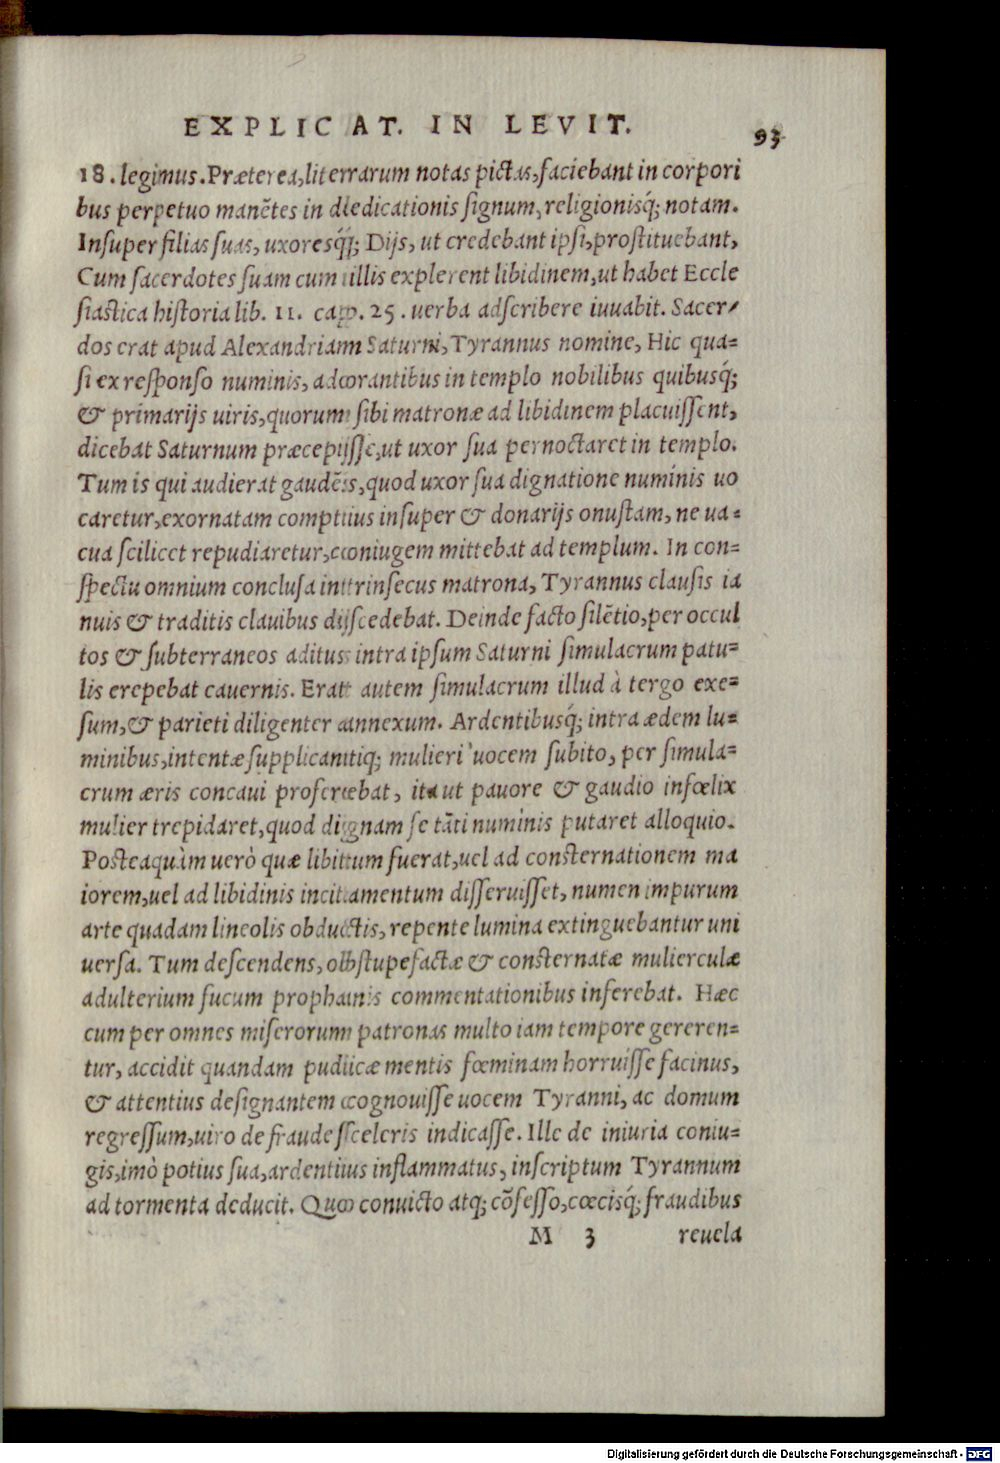 EXPLICAT. IN LEVIT. 93
18. legimus. Præterea, literrarum notas pictas, faciebant in corpori
bus perpetuo manẽtes in dedicationis signum, religionisq́; notam.
Insuper filias suas, uxoresq́; Dijs, ut credebant ipsi, prostituebant,
Cum sacerdotes suam cum illis explerent libidinem, ut habet Eccle
siastica historia lib. 11. cap. 25. uerba adscribere iuuabit. Sacer-
dos erat apud Alexandriam Saturni, Tyrannus nomine, Hic qua=
si ex responso numinis, adorantibus in templo nobilibus quibusq́;
& primarijs uiris, quorum sibi matronæ ad libidinem placuissent,
dicebat Saturnum præcepisse, ut uxor sua pernoctaret in templo.
Tum is qui audierat gaudẽs, quod uxor sua dignatione numinis uo
caretur, exornatam comptius insuper & donarijs onustam, ne ua=
cua scilicet repudiaretur, coniugem mittebat ad templum. In con=
spectu omnium conclusa intrinsecus matrona, Tyrannus clausis ia
nuis & traditis clauibus discedebat. Deinde facto silẽtio, per occul
tos & subterraneos aditus intra ipsum Saturni simulacrum patu=
lis erepebat cauernis. Erat autem simulacrum illud à tergo exe=
sum, & parieti diligenter annexum. Ardentibusq́; intra ædem lu=
minibus, intentæ supplicantiq; mulieri uocem subito, per simula=
crum æris concaui proferebat, ita ut pauore & gaudio infœlix
mulier trepidaret, quod dignam se tãti numinis putaret alloquio.
Posteaquàm uerò quæ libitum fuerat, uel ad consternationem ma
iorem, uel ad libidinis incitamentum disseruisset, numen impurum
arte quadam lineolis obductis, repente lumina extinguebantur uni
uersa. Tum descendens, obstupefactæ & consternatæ mulierculæ
adulterium fucum prophanis commentationibus inferebat. Hæc
cum per omnes miserorum patronas multo iam tempore gereren=
tur, accidit quandam pudicæ mentis fœminam horruisse facinus,
& attentius designantem cognouisse uocem Tyranni, ac domum
regressum, uiro de fraude sceleris indicasse. Ille de iniuria coniu=
gis, imò potius sua, ardentius inflammatus, inscriptum Tyrannum
ad tormenta deducit. Quo conuicto atq; cõfesso, cœcisq́; fraudibus
M 3 reuela
Digitalisierung gefördert durch die Deutsche Forschungsgemeinschaft - DFG